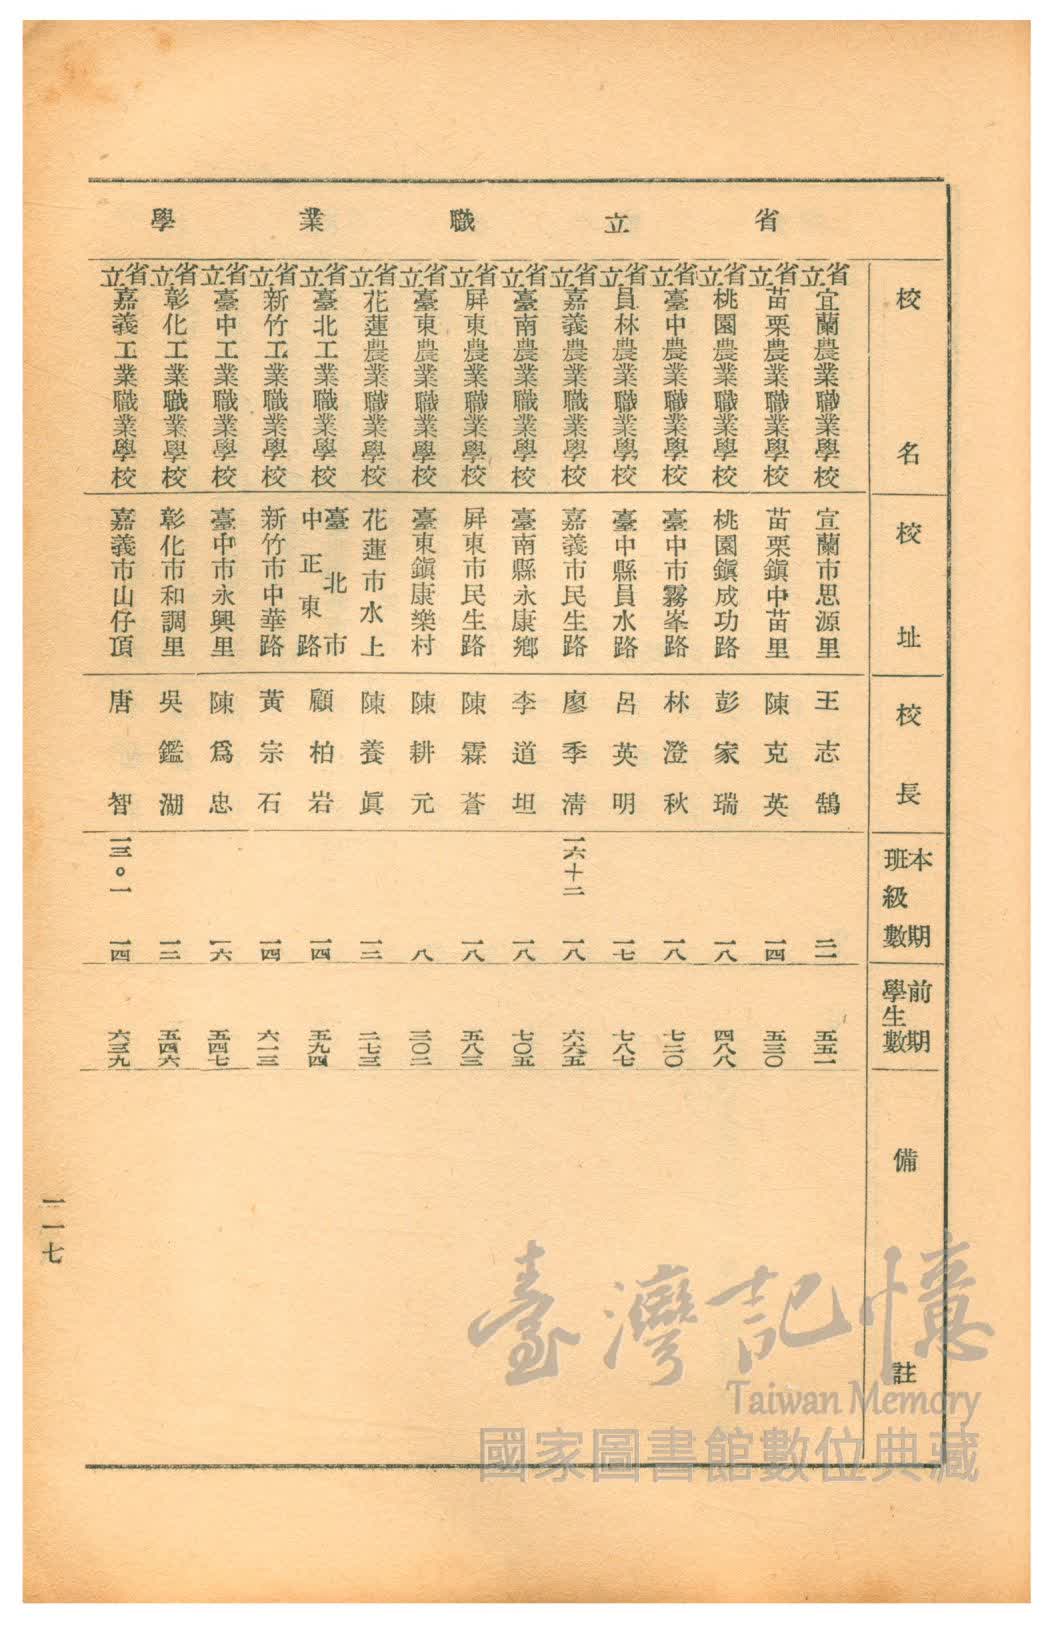 省立職業學
校名 校址 校長 本期班級數 前期學生數 備註
省立宜蘭農業職業學校 宜蘭市思源里 王志鵠 二一 五五一
省立苗栗農業職業學校 苗栗鎭中苗里 陳克英 一四 五三〇
省立桃園農業職業學校 桃園鎭成功路 彭家瑞 一八 四八八
省立臺中農業職業學校 臺中市霧峯路 林澄秋 一八 七二〇
省立員林農業職業學校 臺中縣員水路 呂英明 一七 七八七
省立嘉義農業職業學校 嘉義市民生路 廖季淸 一六十二 一八 六六五
省立臺南農業職業學校 臺南縣永康鄕 李道坦 一八 七〇五
省立屛東農業職業學校 屛東市民生路 陳霖蒼 一八 五八三
省立臺東農業職業學校 臺東鎭康樂村 陳耕元 八 三〇二
省立花蓮農業職業學校 花蓮市水上 陳養眞 一三 二七三
省立臺北工業職業學校 臺北市中正東路 顧柏岩 一四 五九四
省立新竹工業職業學校 新竹市中華路 黃宗石 一四 六一三
省立臺中工業職業學校 臺中市永興里 陳爲忠 一六 五四七
省立彰化工業職業學校 彰化市和調里 吳鑑湖 一三 五四六
省立嘉義工業職業學校 嘉義市山仔頂 唐智 一三。一 一四 六三九
一一七
臺灣記憶
Taiwan Memory
國家圖書館數位典藏